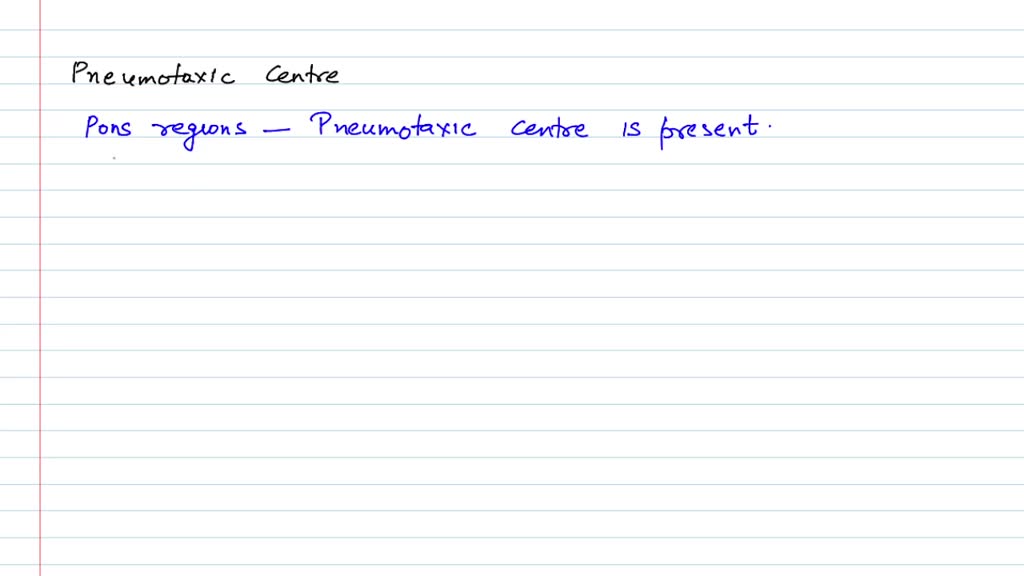 Pneumotaxic Centre
Pons regions — Pneumotaxic centre is present.